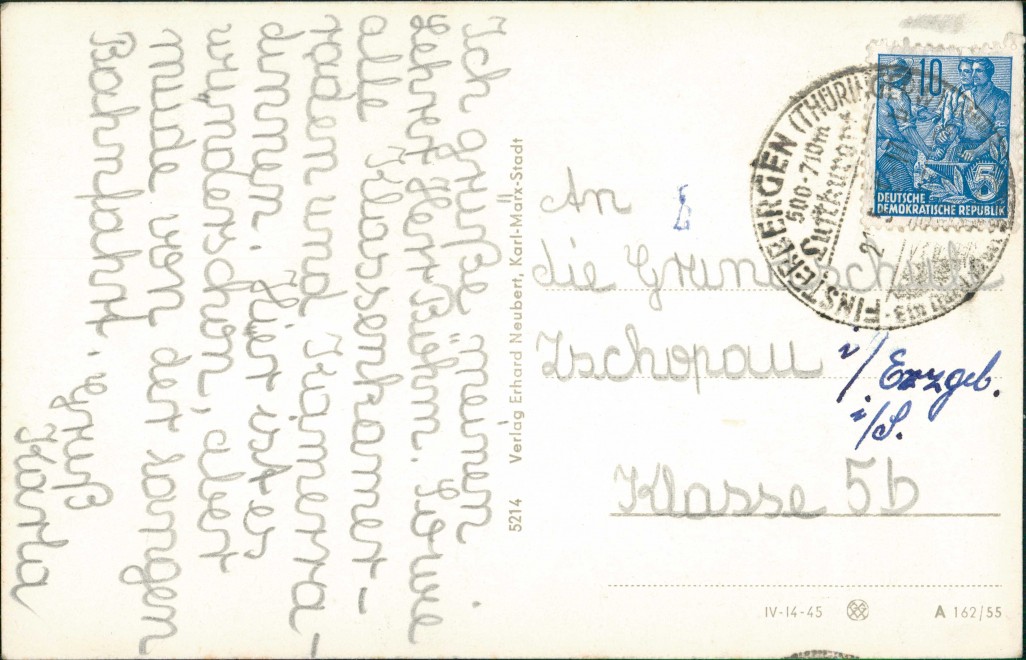 Ich grüße meinen
Lehrer Herr Böhm. Sowie
alle Klassenkamer-
raden und Kamerra-
dinnen. Hier ist es
wunderschön, aber
müde von der langen
Bahnfahrt. Gruß
Martha
5214 Verlag Erhard Neubert, Karl-Marx-Stadt
An
die Grundschule
Zschopau i/ Erzgeb.
i/S.
Klasse 5b
IV-14-45
A 162/55
10
5
DEUTSCHE
DEMOKRATISCHE REPUBLIK
FINSTERBERGEN (THÜRINGER
500-710m
Luftkurort